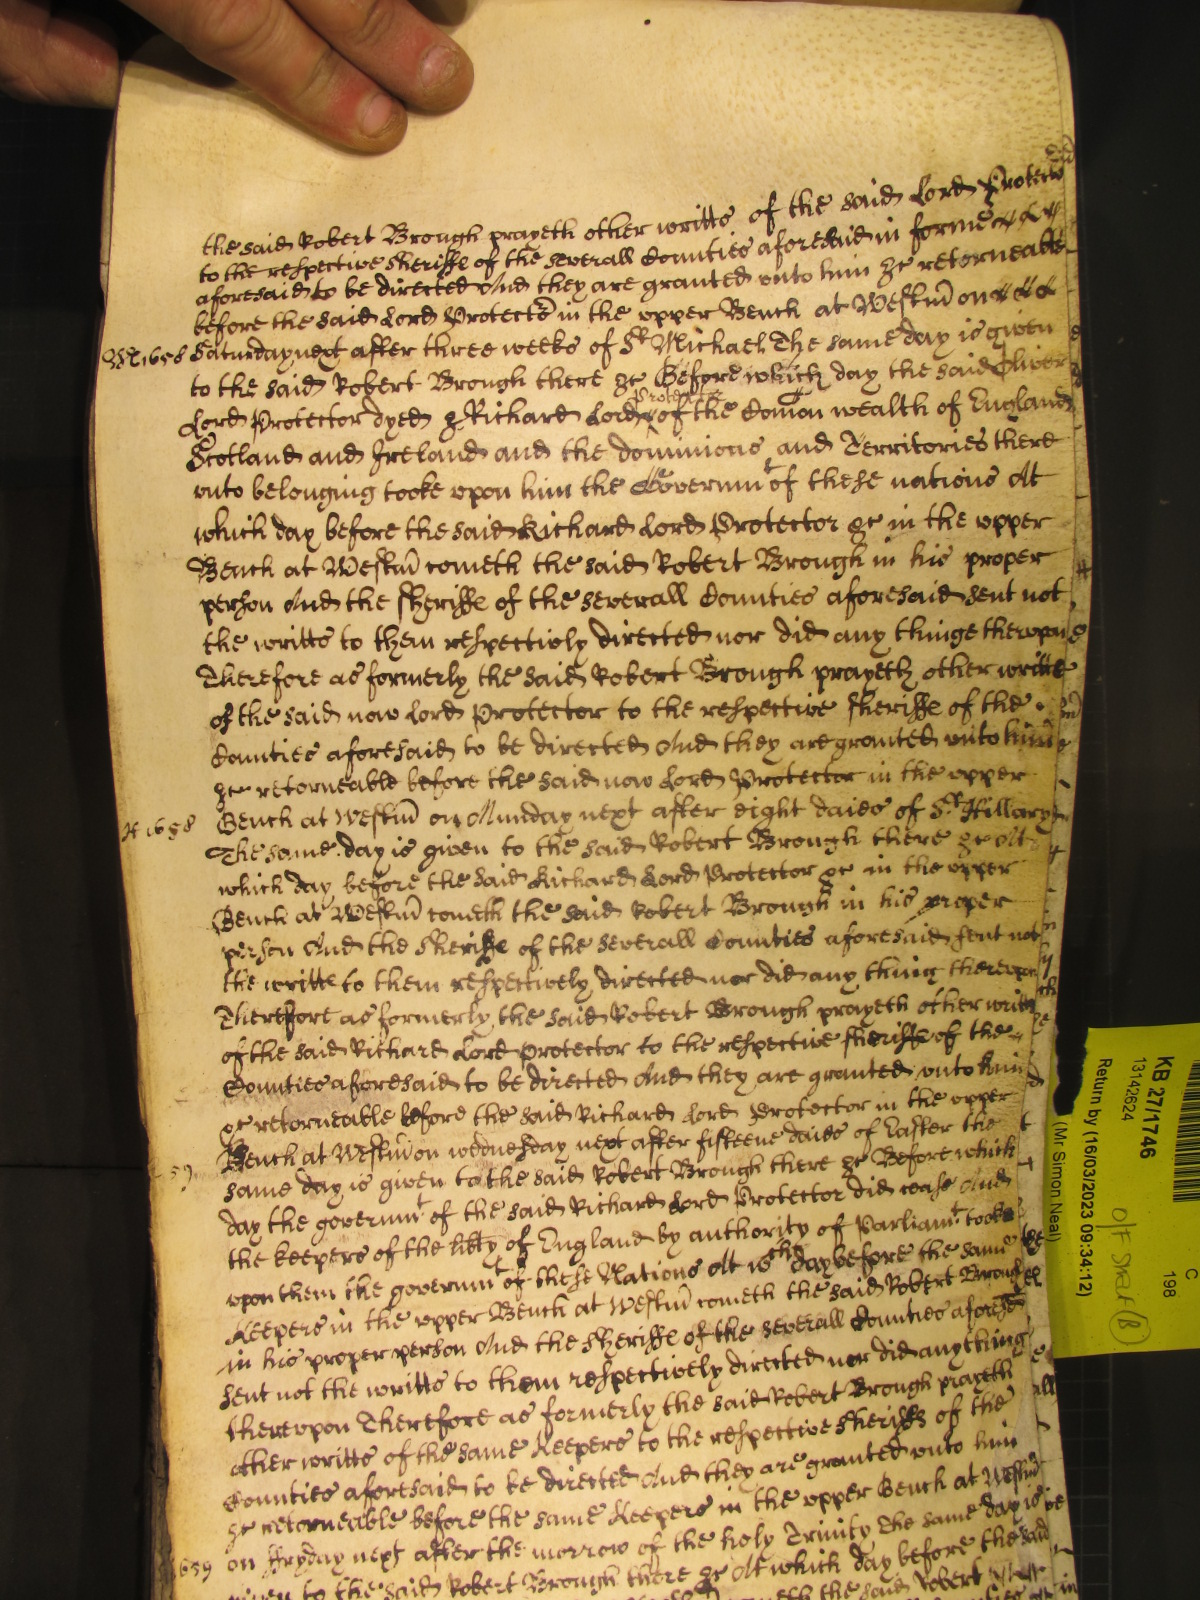 the said Robert Brough prayeth other writts of the said Lord Protector
to the respective Sheriffe of the severall Counties aforesaid in forme
aforesaid to be directed And they are granted unto him &c retorneable
before the said Lord Protector in the upper Bench at Westm̄ on
M 1658 Saturday next after three weeks of St Michael The same day is given
to the said Robert Brough there &c Before which day the said Oliver
Lord Protector dyed & Richard Lord Protector of the Com̄on wealth of England
Scotland and Ireland and the dominions and Territories there
unto belonging tooke upon him the Governmt of these nations At
which day before the said Richard Lord Protector &c in the upper
Bench at Westm̄ cometh the said Robert Brough in his proper
person And the Sheriffe of the severall Counties aforesaid sent not
the writts to them respectivly directed nor did any thinge thereupon
Therefore as formerly the said Robert Brough prayeth other writts
of the said now Lord Protector to the respective Sheriffe of the
Counties aforesaid to be directed And they are granted unto him
&c retorneable before the said now Lord Protector in the upper
H 1658 Bench at Westm̄ on Munday next after eight daies of St Hillary
The same day is given to the said Robert Brough there &c At
which day before the said Richard Lord Protector &c in the upper
Bench at Westm̄ cometh the said Robert Brough in his proper
person And the Sheriffe of the severall Counties aforesaid sent not
the writts to them respectively directed nor did any thing thereupon
Therefore as formerly the said Robert Brough prayeth other writts
of the said Richard Lord Protector to the respective Sheriffe of the
Counties aforesaid to be directed And they are granted unto him
&c retorneable before the said Richard Lord Protector in the upper
59 Bench at Westm̄ on wednesday next after fifteene daies of Easter the
same day is given to the said Robert Brough there &c Before which
day the governmt of the said Richard Lord Protector did cease And
the keepers of the lib̄ty of England by authority of Parliamt tooke
upon them the governmt of these Nations At wch day before the same
Keepers in the upper Bench at Westm̄ cometh the said Robert Brough
in his proper person And the Sheriffe of the severall Counties aforesd
sent not the writts to them respectively directed nor did anything
thereupon Therefore as formerly the said Robert Brough prayeth
other writts of the same Keepers to the respective Sheriffs of the
Counties aforesaid to be directed And they are granted unto him
&c retorneable before the same Keepers in the upper Bench at Westm̄
659 on Fryday next after the morrow of the holy Trinity The same day is
given to the said Robert Brough there &c At which day before the said
cometh the said Robert
KB 27/1746
13142624
Return by (16/03/2023 09:34:12)
(Mr Simon Neal)
C
198
Off Shelf (B)